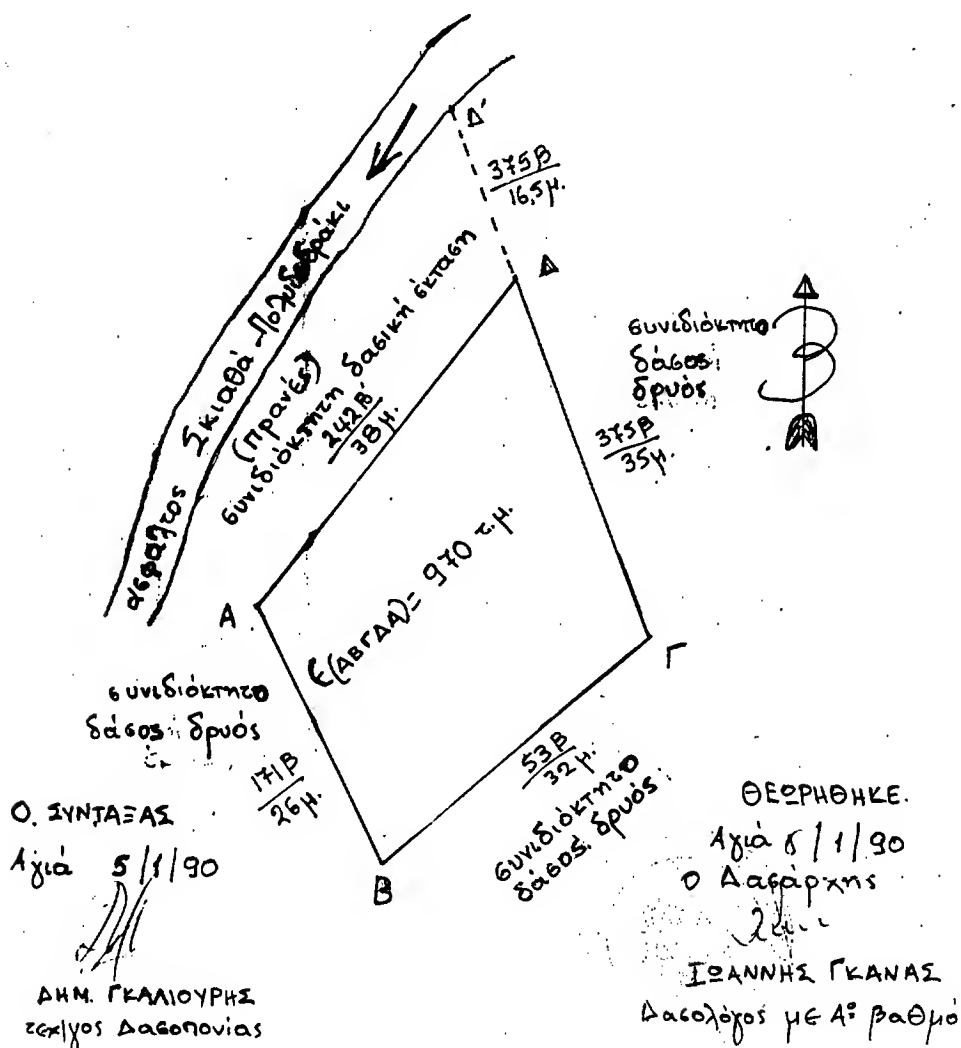 Δ'
375β
16,5μ.
Δ
άσφαλτος Σκιαθά - Πολυδενδράκι
(Πρανές)
συνιδιόκτητη δασική έκταση
242β
38μ.
συνιδιόκτητο
δάσος
δρυός
375β
35μ.
Ε(ΑΒΓΔΑ)= 970 τ.μ.
Α
Γ
συνιδιόκτητο
δάσος δρυός
171β
26μ.
53β
32μ.
συνιδιόκτητο
δάσος δρυός
Β
Ο. ΣΥΝΤΑΞΑΣ
Αγιά 5/1/90
ΔΗΜ. ΓΚΑΛΙΟΥΡΗΣ
τεχ/γος Δασοπονίας
ΘΕΩΡΗΘΗΚΕ.
Αγιά /1/90
ο Δασάρχης
ΙΩΑΝΝΗΣ ΓΚΑΝΑΣ
Δασολόγος με Α° βαθμό